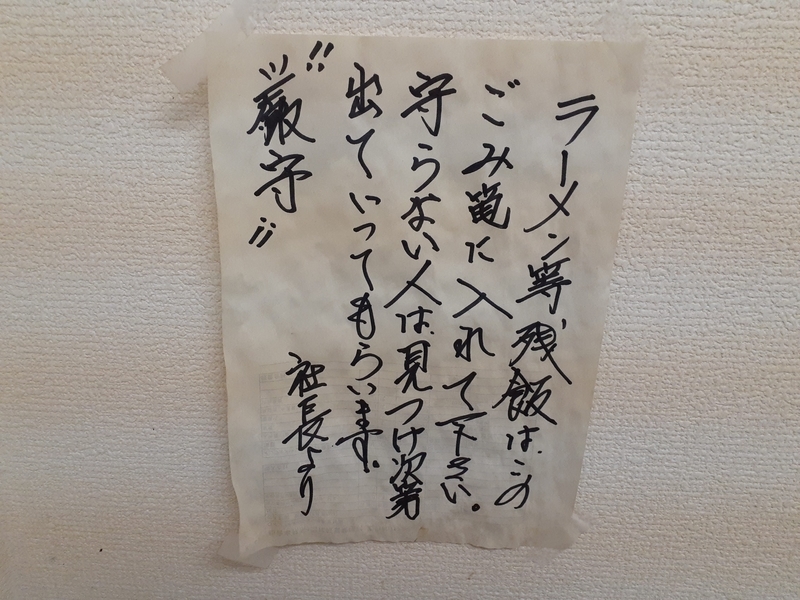 ラーメン等、残飯はこの
ごみ篭に入れて下さい。
守らない人は見つけ次第
出ていってもらいます。
"厳守"
社長より